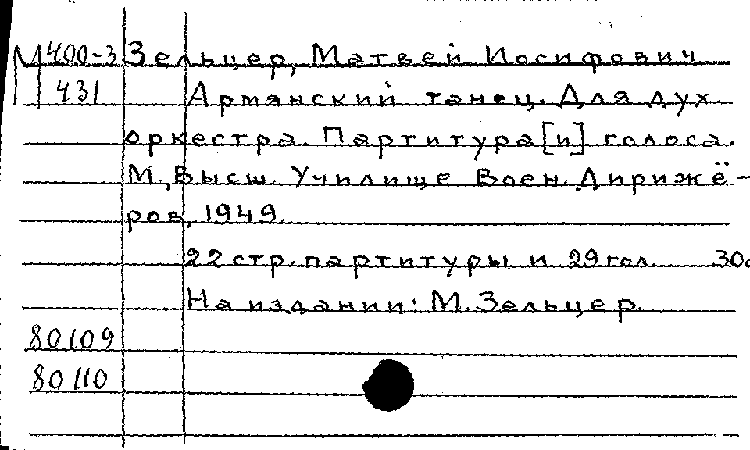 М400-3 Зельцер, Матвей Иосифович
431 Армянский танец. Для дух
оркестра. Партитура [и] голоса.
М., Высш. Училище Воен. Дирижё-
ров, 1949.
22 стр. партитуры и 29 гол. 30
На издании: М. Зельцер.
80109
80110